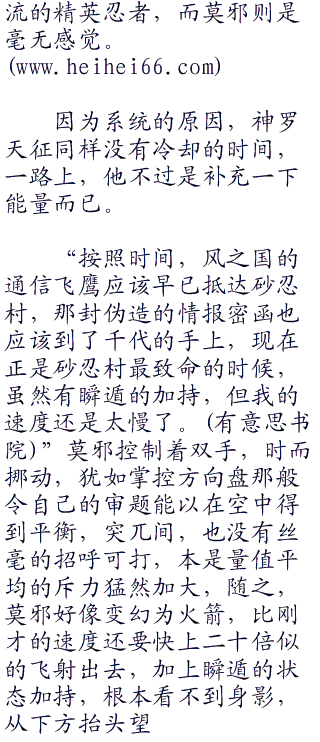 流的精英忍者，而莫邪则是
毫无感觉。
(www.heihei66.com)
因为系统的原因，神罗
天征同样没有冷却的时间，
一路上，他不过是补充一下
能量而已。
“按照时间，风之国的
通信飞鹰应该早已抵达砂忍
村，那封伪造的情报密函也
应该到了千代的手上，现在
正是砂忍村最致命的时候，
虽然有瞬遁的加持，但我的
速度还是太慢了。(有意思书
院)”莫邪控制着双手，时而
挪动，犹如掌控方向盘那般
令自己的审题能以在空中得
到平衡，突兀间，也没有丝
毫的招呼可打，本是量值平
均的斥力猛然加大，随之，
莫邪好像变幻为火箭，比刚
才的速度还要快上二十倍似
的飞射出去，加上瞬遁的状
态加持，根本看不到身影，
从下方抬头望